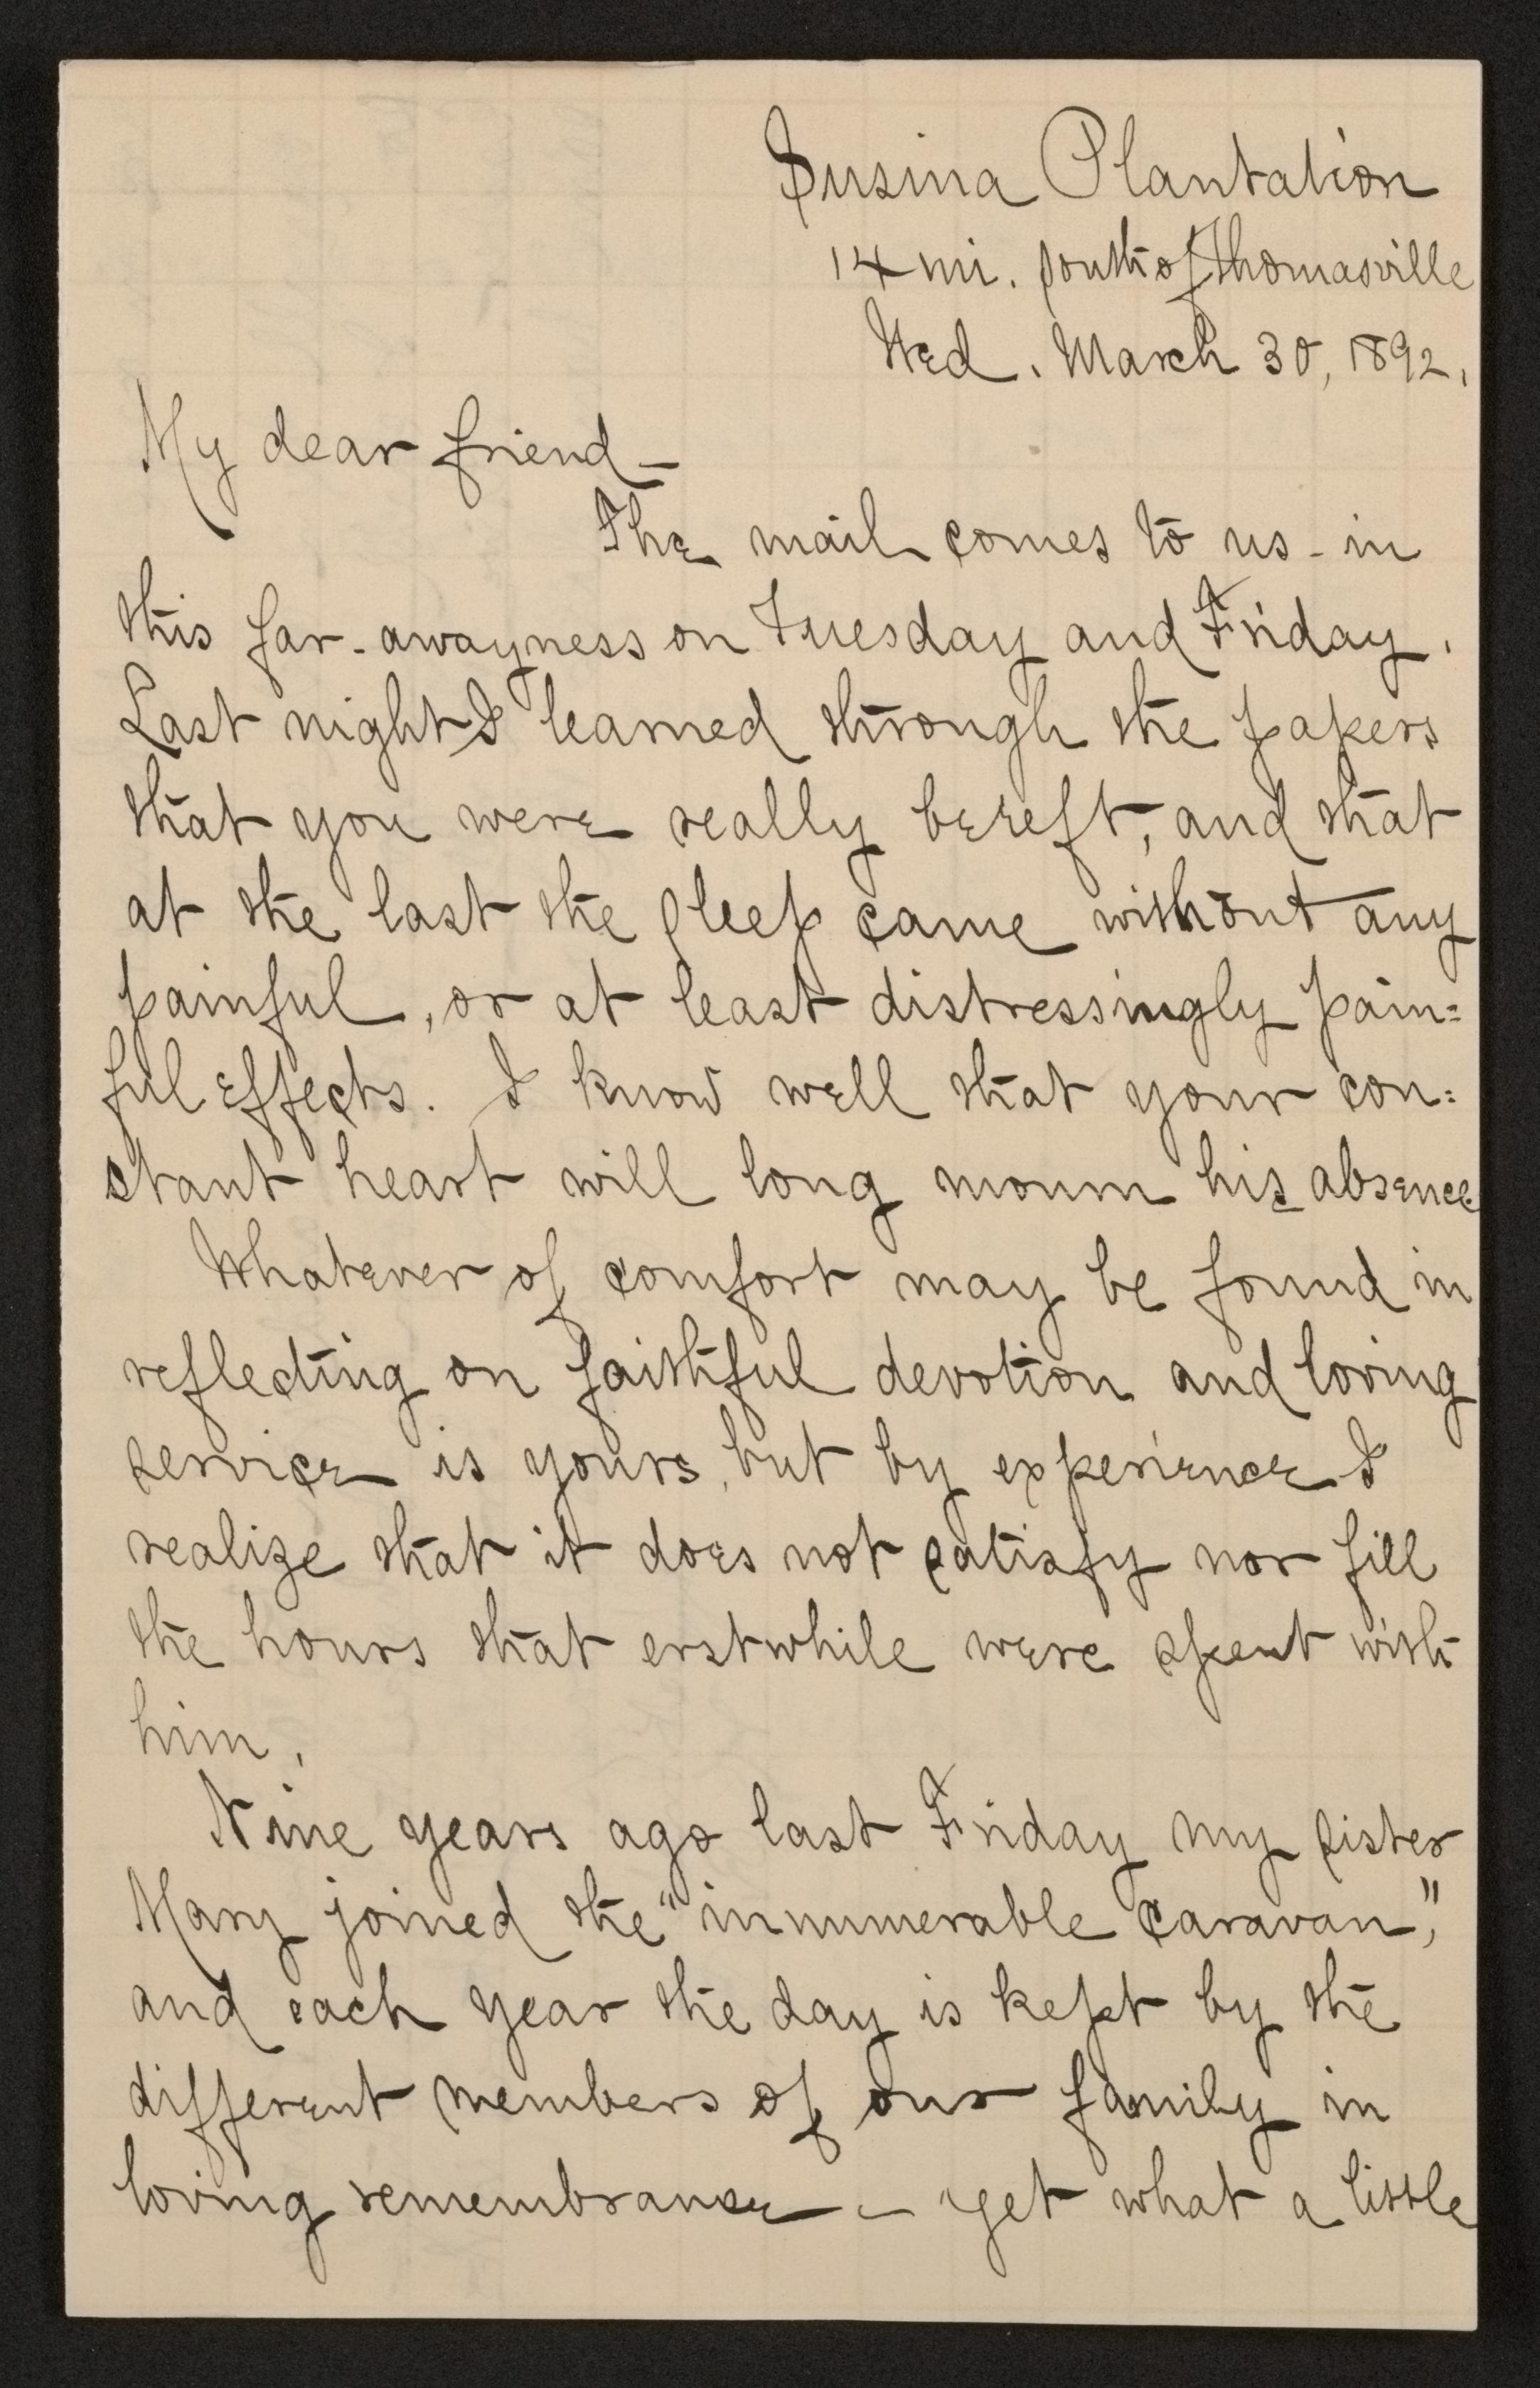 Susina Plantation
14 mi. south of Thomasville
Wed. March 30, 1892.
My dear friend –
The mail comes to us - in
this far-awayness on Tuesday and Friday.
Last night I learned through the papers
that you were really bereft, and that
at the last the sleep came without any
painful, or at least distressingly pain=
ful effects. I know well that your con=
stant heart will long mourn his absence
Whatever of comfort may be found in
reflecting on faithful devotion and loving
service is yours, but by experience I
realize that it does not satisfy nor fill
the hours that erstwhile were spent with
him.
Nine years ago last Friday my sister
Mary joined the "innumerable caravan",
and each year the day is kept by the
different members of our family in
loving remembrance – yet what a little